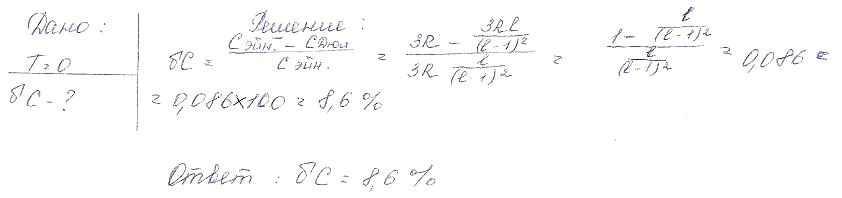 Дано:
T=0
δC - ?
Решение:
δC = (C эйн. − C Дюл) / C эйн. = (3R − 3Rl/(l-1)²) / (3R l/(l-1)²) = (1 − l/(l-1)²) / (l/(l-1)²) = 0,086 =
= 0,086×100 = 8,6 %
Ответ: δC = 8,6 %